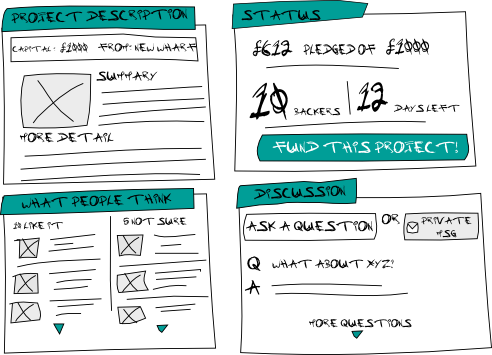 PROJECT DESCRIPTION
CAPITAL: £1000 FROM: NEW WHARF
SUMMARY
MORE DETAIL
STATUS
£612 PLEDGED OF £1000
10 BACKERS 12 DAYS LEFT
FUND THIS PROJECT!
WHAT PEOPLE THINK
LIKE IT
5 NOT SURE
DISCUSSION
ASK A QUESTION OR PRIVATE
MSG
Q WHAT ABOUT XYZ?
A
MORE QUESTIONS